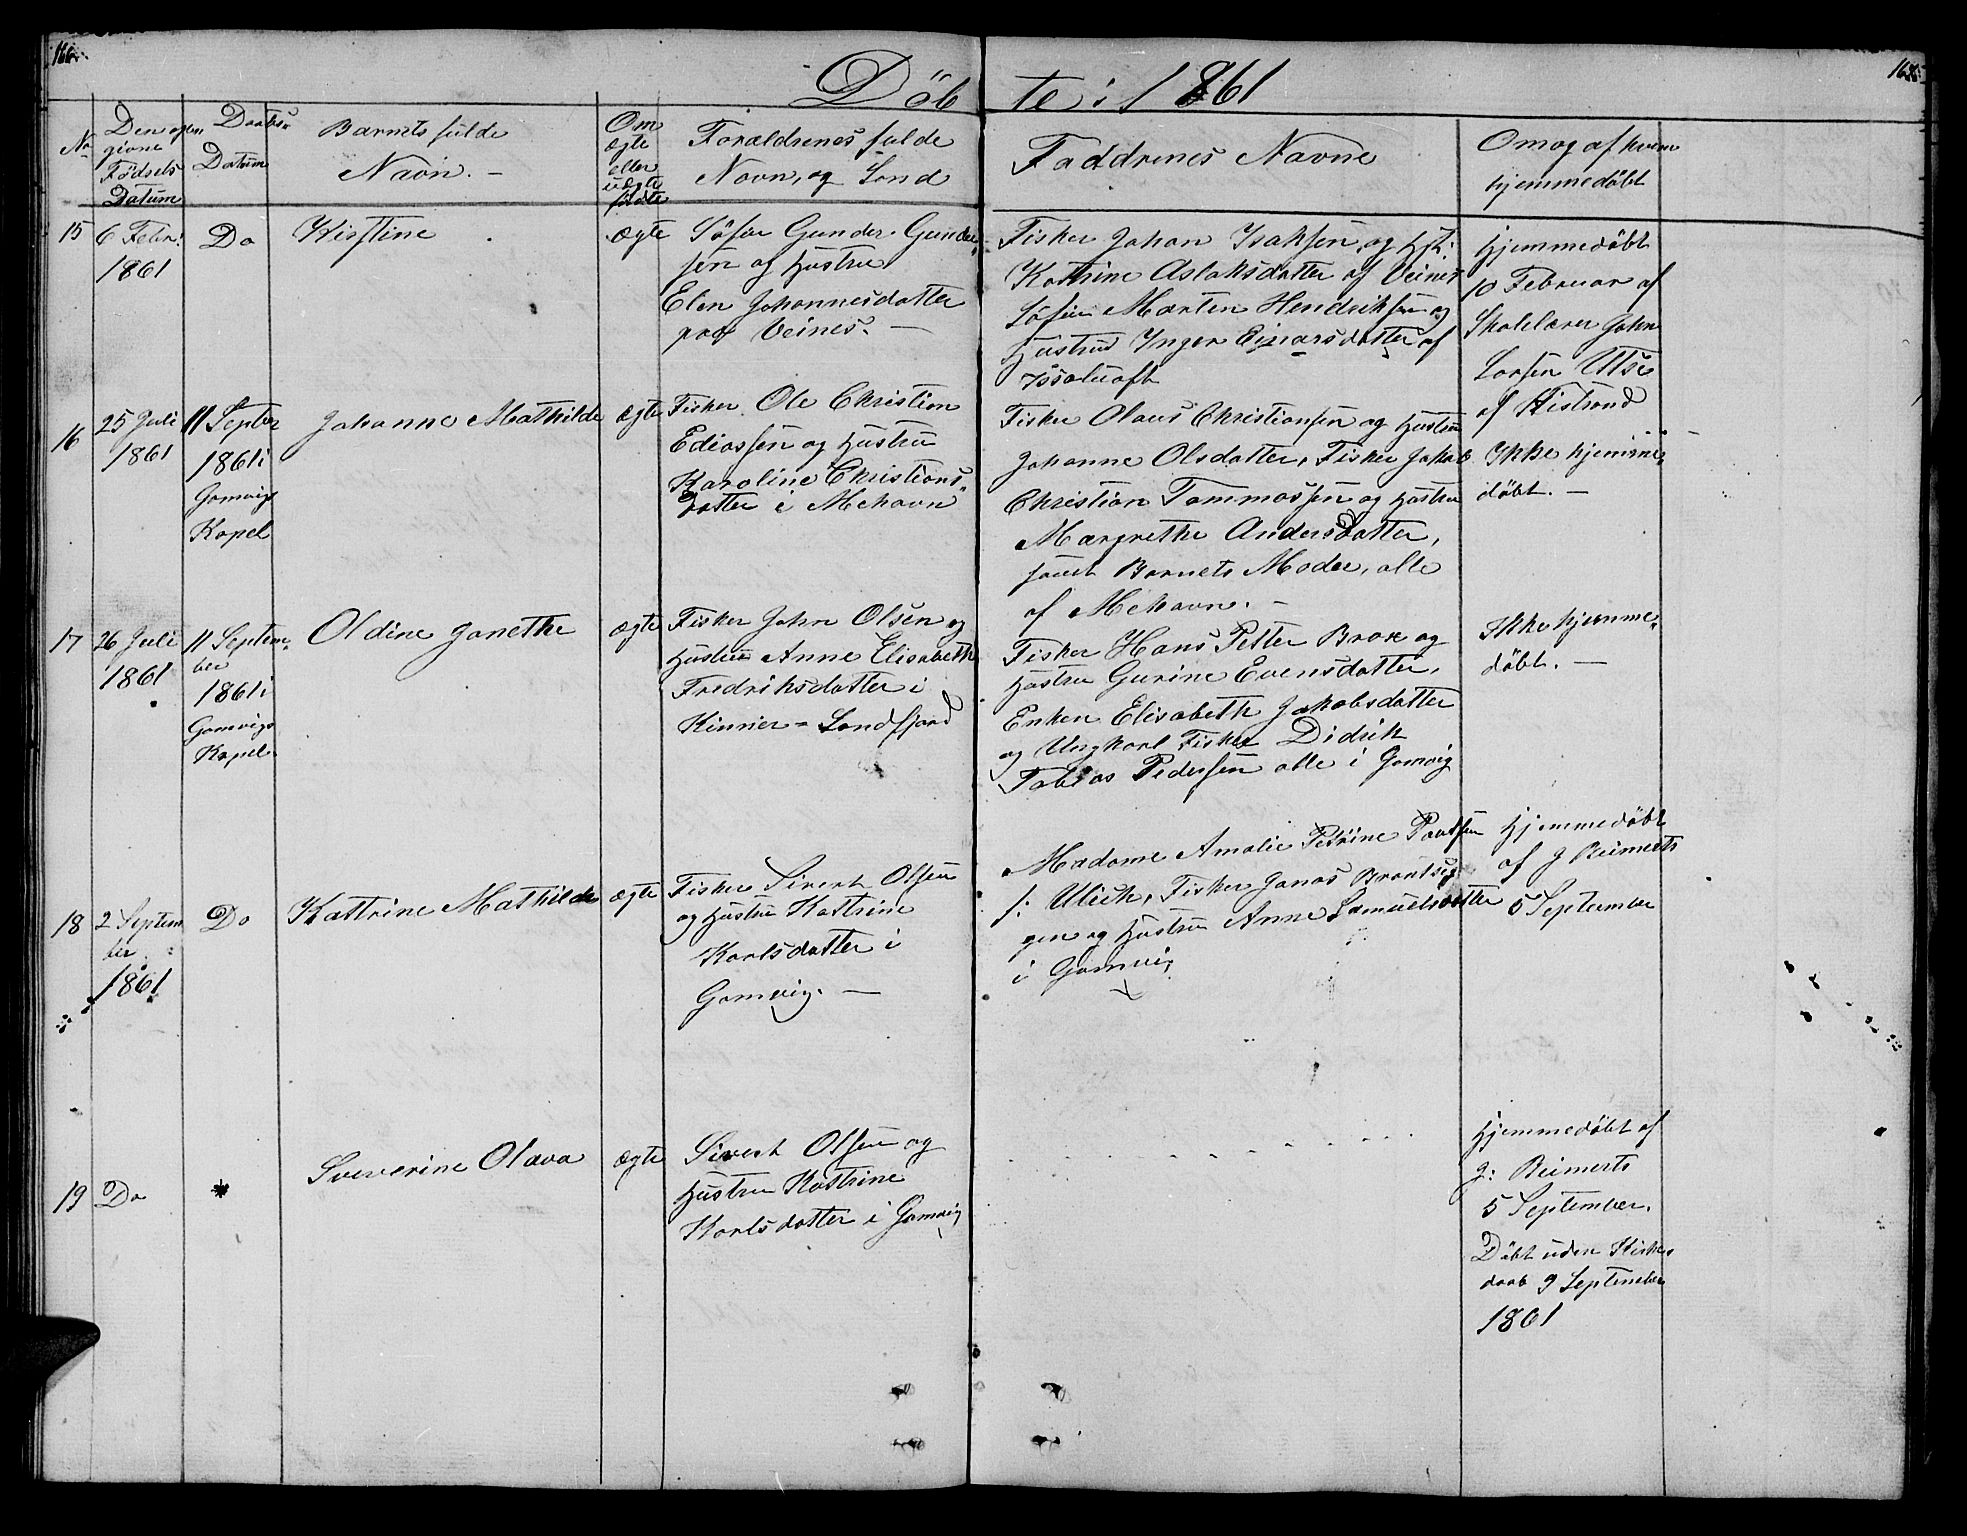 166
Döbte i 1861
No
Den opgivne Födsels Datum
Daabs Datum
Barnets fulde Navn. —
Om ægte eller uægte födte
Forældrenes fulde Navn, og Stand
Faddrenes Navne
Om og af hvem hjemmedöbt
15
6 Febr:
1861
Do
Kistine
ægte
Söfin Gunder Gunder„
sen og Hustru
Elen Johannesdatter
paa Veines. —
Fisker Johan Isaksen og Hst:
Katrine Aslaksdatter af Veines
Söfin Marten Hendriksen og
Hustrud Inger Einarsdatter af
Hjemmedöbt
10 Februar af
Skolelærer John
Larsen Utsi
af Kistrand
16
25 Juli
1861
11 Septbr
1861 i
Gamvigs
Kapel
Johanne Mathilde
ægte
Fisker Ole Christian
Ediassen og Hustru
Karoline Christians„
datter i Mehavn
Fisker Olaus Christiansen og Hustru
Johanne Olsdatter, Fisker Jakob
Christian Tommassen og Hustru
Margrethe Andersdatter,
samt Barnets Moder, alle
af Mehavn. —
Ikke hjemme„
döbt. —
17
26 Juli
1861
11 Septem„
ber
1861 i
Gamvigs
Kapel
Oldine Janethe
ægte
Fisker John Olsen og
Hustru Anne Elisabeth
Fredriksdatter i
Kinner - Sandfjord
Fisker Hans Petter Brox og
Hustru Gurine Evensdatter,
Enken Elisabeth Jakobsdatter
og Ungkarl Fisker Didrik
Tobias Pedersen alle i Gamvig
Ikke hjemme„
döbt. —
18
2 Septem
ber
1861
Do
Kattrine Mathilde
ægte
Fisker Sivert Olsen
og Hustru Kattrine
Karlsdatter i
Gamvig. —
Madame Amalie Petrine Pavelsen
f: Ulich, Fisker Jonas Brantsig
gen og Hustru Anne Samuelsdatter
i Gamvig
Hjemmedöbt
af J Reimerts
5 September
19
Do
*
Severine Olava
ægte
Sivert Olsen og
Hustru Kattrine
Karlsdatter i Gamvig
Hjemmedöbt af
J: Reimerts
5 September.
Döbt uden Kirke
daab 9 September
1861